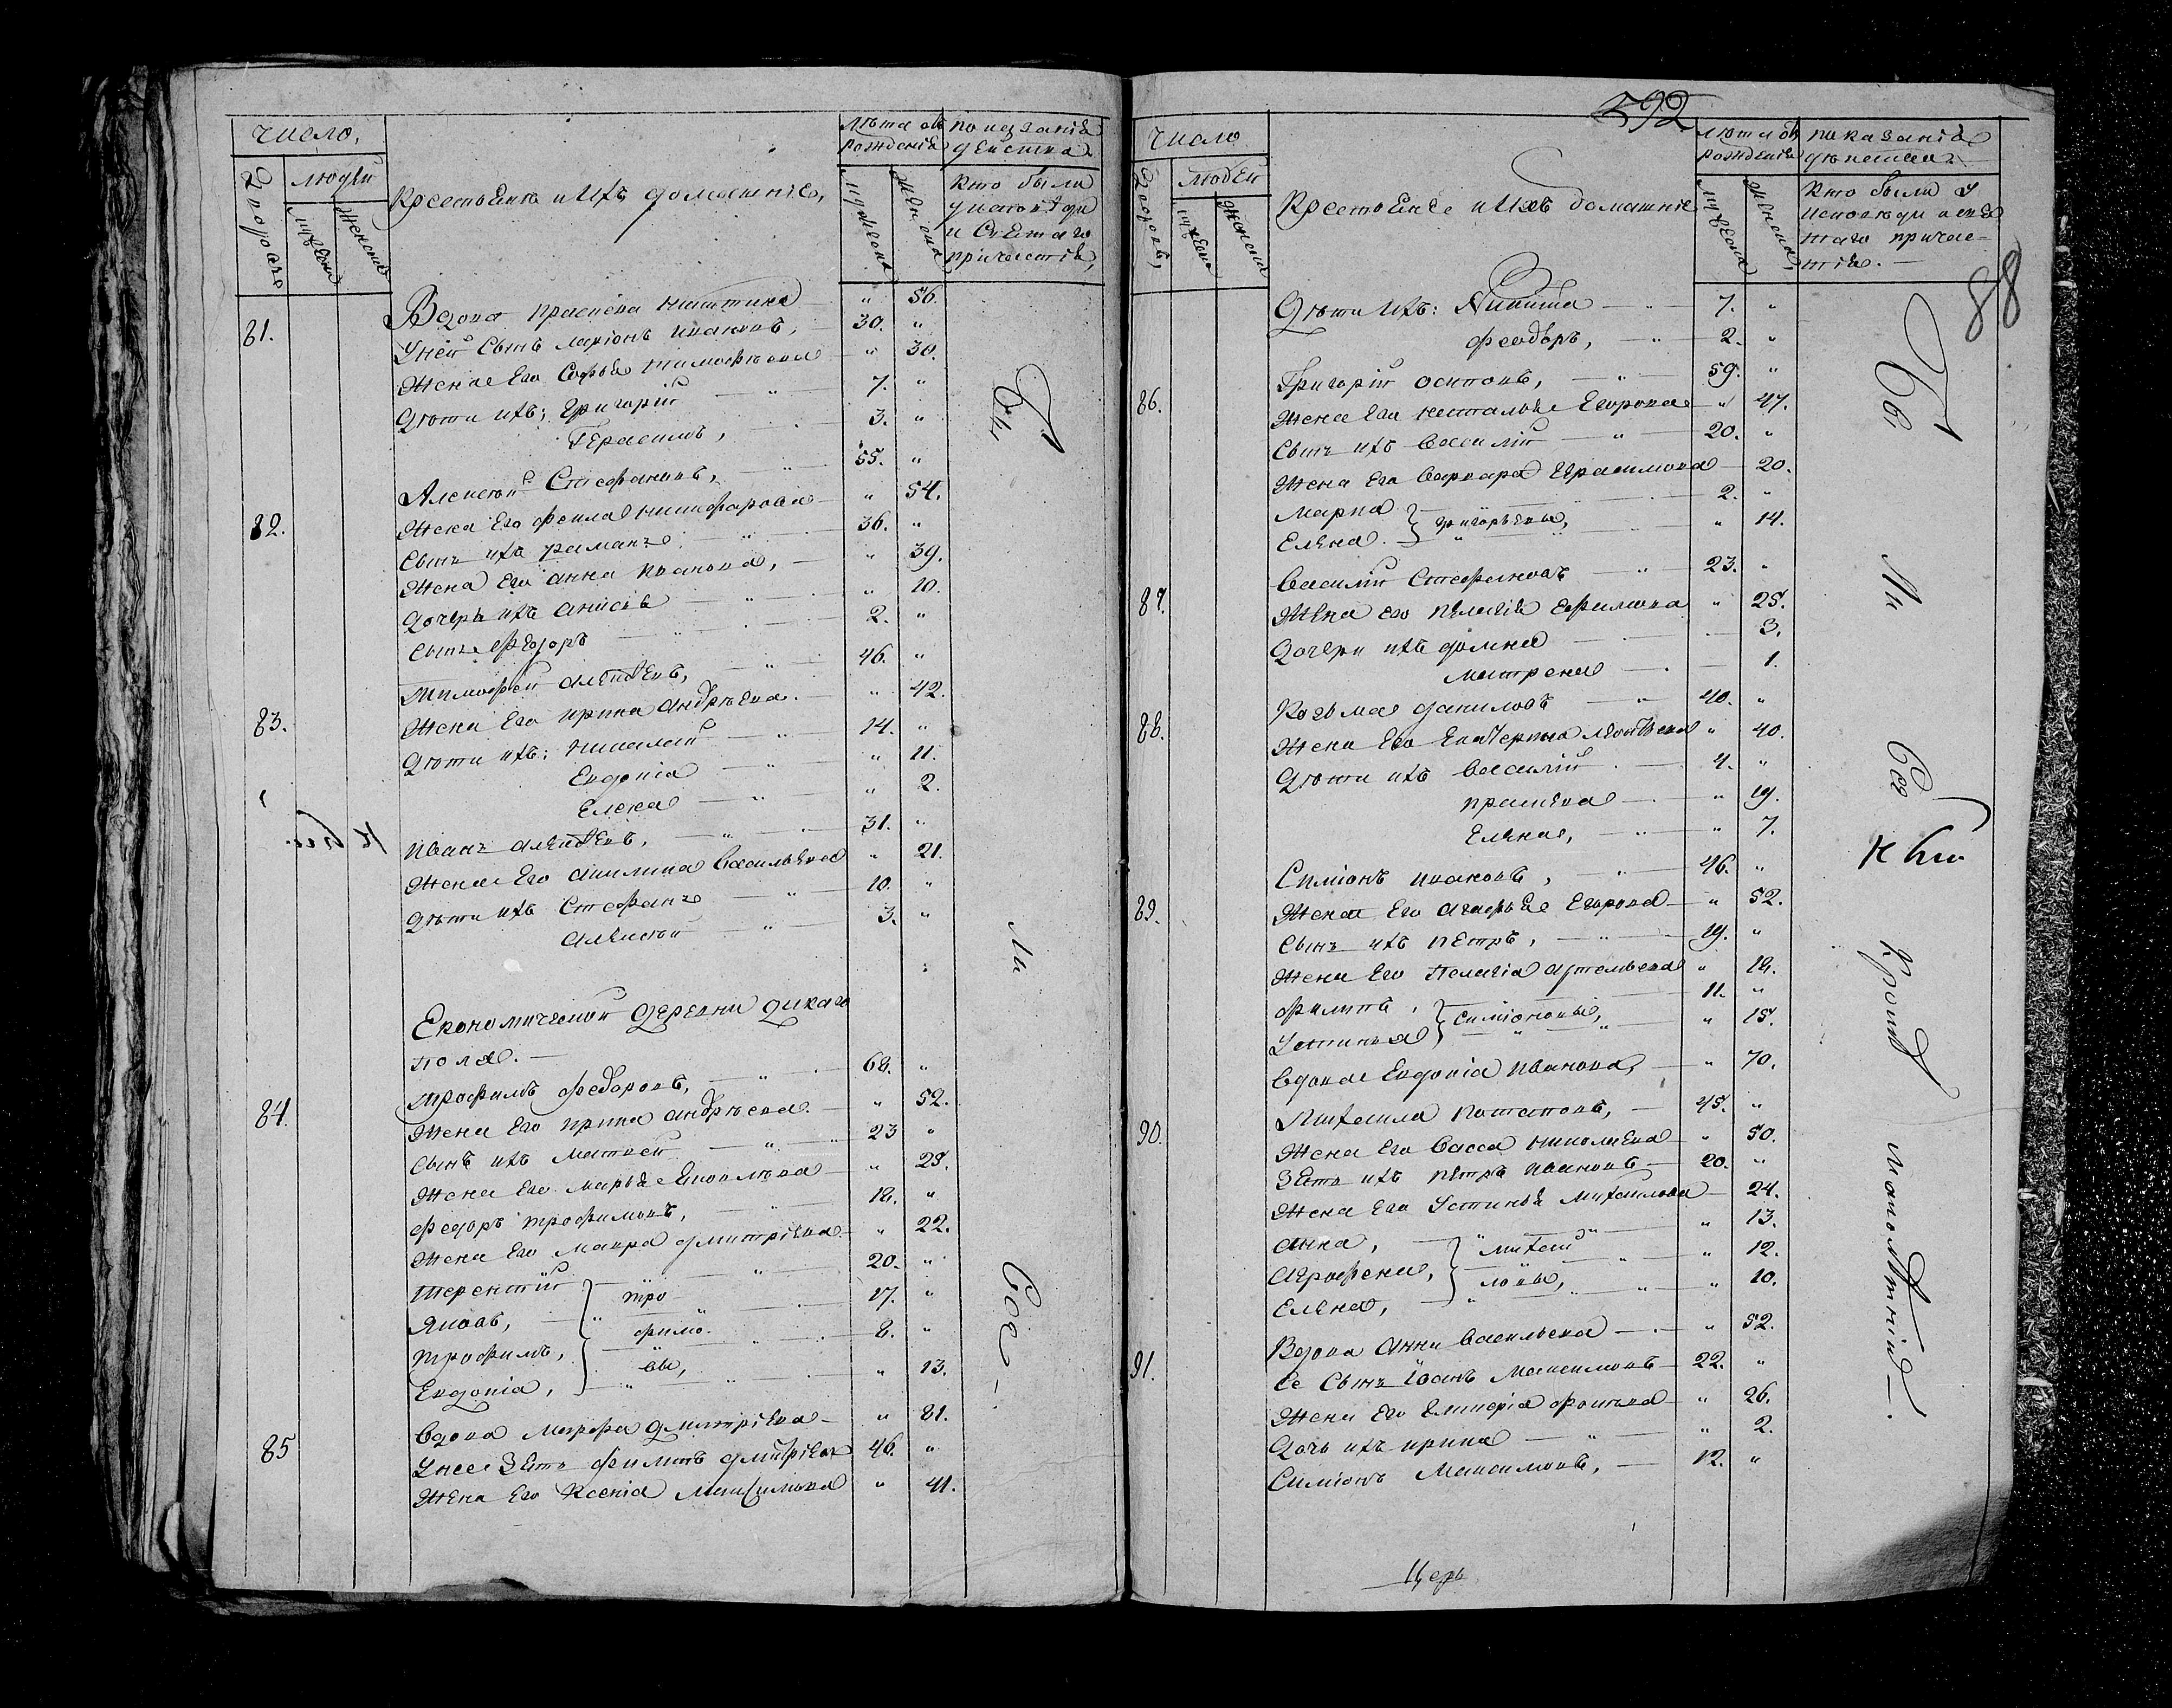 число,
Дворовъ
людей
мужеска
женска
Крестьяне и ихъ домашніе,
Лѣта отъ рожденія
мужеска
женска
показаніе действа
кто были
у исповѣди
и Святаго
причастія,
81. Вдова Праскева Никитина " 56.
У ней Сынъ Ларіонъ Ивановъ, 30. "
Жена Его Софья Тимофѣева " 30.
Дѣти ихъ: Григорій 7. "
Герасимъ, 3. "
82. Алексѣй Стефановъ, 55. "
Жена Его Фекла Никифорова " 54.
Сынъ ихъ Романъ 36. "
Жена Его Анна Иванова, " 39.
Дочерь ихъ Анисья " 10.
Сынъ Федоръ 2. "
83. Тимофей Алексѣевъ, 46. "
Жена Его Ирина Андрѣева. " 42.
Дѣти ихъ: Николай 14. "
Евдокіа " 11.
Елена " 2.
Иванъ Алексѣевъ, 31. "
Жена Его Акилина Васильева " 21.
Дѣти ихъ Стефанъ 10. "
Алексѣй 3. "
Економической деревни Дикаго
поля.
84. Трофимъ Федоровъ, 68. "
Жена Его Ирина Андрѣева. " 52.
Сынъ ихъ Матвей 23 "
Жена Его Марья Яковлева " 25.
Федоръ Трофимовъ, 18. "
Жена Его Мавра Дмитріева " 22.
Терентій } Тро 20. "
Яковъ, " 17. "
Трофимъ, фимо. 8. "
Евдокіа, вы, " 13.
85 Вдова Марфа Дмитріева " 81.
У нее Зять Филипъ Дмитріевъ 46. "
Жена Его Ксенія Максимова " 41.
Бы
ли
Все
592
88
число
Дворовъ,
людей
мужеска
женска
Крестьяне и ихъ домашніе
лѣта отъ рожденія
мужеска
женска,
показаніе действа
кто были у
исповѣди и свя
таго причас-
тія.
Дѣти ихъ: Никита 7. "
Феодоръ, 2. "
86. Григорій Осиповъ, 59. "
Жена Его Наталья Егорова " 47.
Сынъ ихъ Василій 20. "
Жена Его Варвара Герасимова 20.
Марка } Григорьевы, 2. "
Елена. " 14.
87. Василій Стефановъ 23. "
Жена его Пелагія Ефимова " 25.
Дочери ихъ Домна 3.
Матрена 1.
88. Козьма Даниловъ 40. "
Жена Его Екатерина Леонтьева " 40.
Дѣти ихъ Василій 4. "
Праскева " 19.
Елена, " 7.
89. Симіонъ Ивановъ, 46. "
Жена Его Агафья Егорова " 52.
Сынъ ихъ Петръ, 19. "
Жена Его Пелагіа Артемьева " 18.
Филипъ, } Симіоновы, 11. "
Устинья " 15.
Вдова Евдокіа Иванова, " 70.
90. Михаила Потаповъ, 45. "
Жена Его Васса Николаева " 50.
Зять ихъ Петръ Ивановъ 20. "
Жена Его Устинья Михаилова 24.
Анна, } Михай " 13.
Агрофена, ловы, " 12.
Елена, " 10.
91. Вдова Анна Васильева " 52.
Ее Сынъ Іванъ Максимовъ 22. "
Жена Его Гликеріа Фокина " 26.
Дочь ихъ Ирина " 2.
Симіонъ Максимовъ, 12. "
Бы
ли
Все
Кроме
малолѣтнихъ
Церк